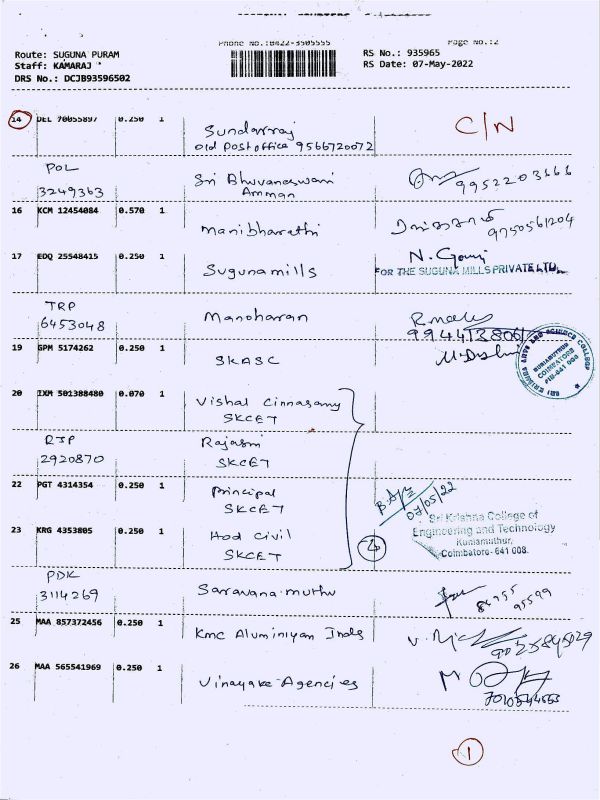 Phone No.:0422-3505555
Page No.:2
Route: SUGUNA PURAM
RS No.: 935965
Staff: KAMARAJ
RS Date: 07-May-2022
DRS No.: DCJB93596502
14 DEL 70055897 0.250 1 Sundarraj C/N
Old Post office 9566720072
POL Sri Bhuvaneswari
3249363 Amman
16 KCM 12454084 0.570 1 Manibharathi 9750561204
17 EDQ 25548415 0.250 1 Sugunamills N. Gowri
FOR THE SUGUNA MILLS PRIVATE LTD.,
TRP Manoharan
6453048
19 GPM 5174262 0.250 1 SKASC
SRI KRISHNA ARTS AND SCIENCE COLLEGE
KUNIAMUTHUR
COIMBATORE
PIN-641 008
20 IXM 501388480 0.070 1 Vishal Cinnasamy
SKCET
RJP Rajasri
2920870 SKCET
22 PGT 4314354 0.250 1 Principal
SKCET
07/05/22
23 KRG 4353805 0.250 1 Hod Civil
SKCET
Sri Krishna College of
Engineering and Technology
Kuniamuthur,
Coimbatore-641 008.
4
PDK Saravana muthu
3114269
25 MAA 857372456 0.250 1 Kmc Aluminiyam Inds
26 MAA 565541969 0.250 1 Vinayaka Agencies
1